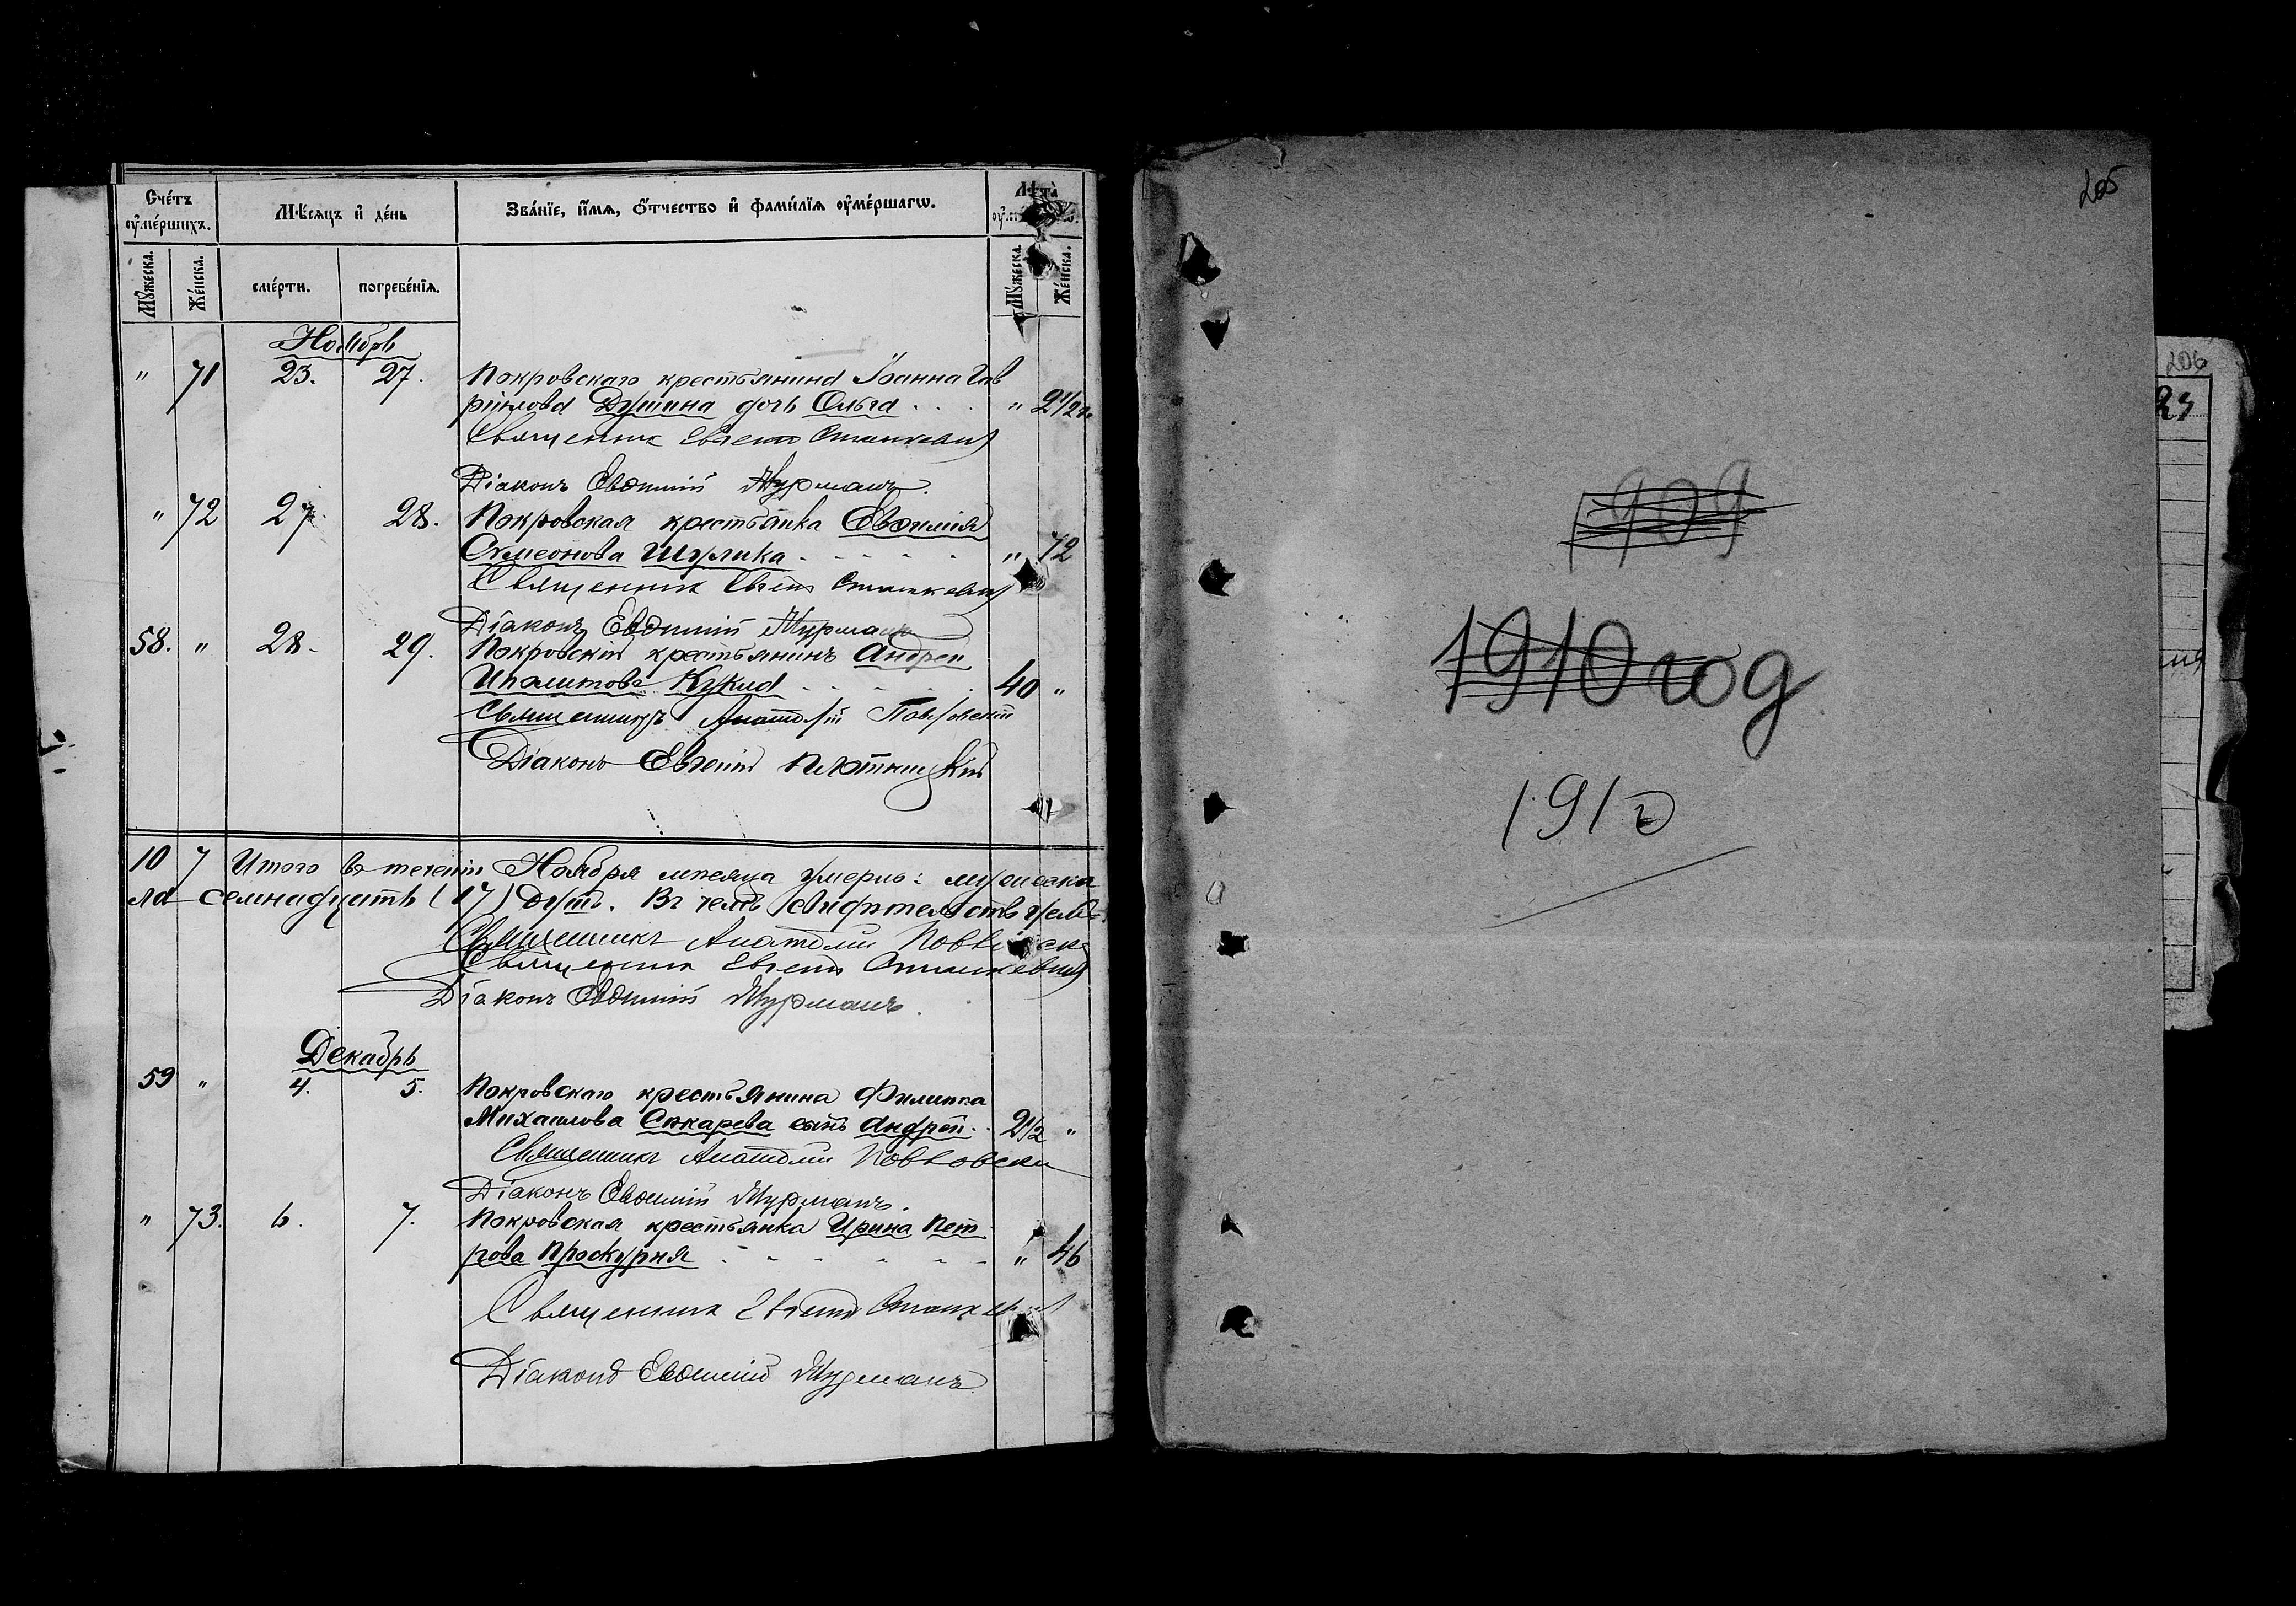 Сче́тъ оу҆ме́ршихъ.
Мѣ́сяцъ и҆ де́нь
Зва́нїе, и҆́мѧ, о҆́тчество и҆ фами́лїѧ оу҆ме́ршагѡ.
Лѣта̀
Мꙋ́жеска.
Же́нска.
сме́рти.
погребе́нїѧ.
Мꙋ́жеска.
Же́нска.
Ноябрь
" 71 23. 27. Покровскаго крестьянина Іоанна Гав
ріилова дочь Ольга . . . " 2 1/2
Священникъ Евгеній Станкевичъ
Діаконъ Евѳимій Мурманъ.
" 72 27 28. Покровская крестьянка Евѳимія
Сѵмеонова Шулика - - - - - " 72
Священникъ Евгеній Станкевичъ
Діаконъ Евѳимій Мурманъ
58. " 28. 29. Покровскій крестьянинъ Андрей
Иполитовъ Кукла - - - - 40 "
Священникъ Анатолій
Діаконъ Евгеній
10 7 Итого въ теченіи Ноября мѣсяца умерло:
семнадцать (17) душъ. Въ чемъ
Священникъ Анатолій
Священникъ Евгеній Станкевичъ
Діаконъ Евѳимій Мурманъ.
Декабрь
59 " 4. 5. Покровскаго крестьянина Филиппа
Михаилова сынъ Андрей. . 2 1/2 "
Священникъ Анатолій
Діаконъ Евѳимій Мурманъ.
" 73. 6. 7. Покровская крестьянка Ирина Пет
рова Проскурня - - - - - - " 46
Священникъ Евгеній
Діаконъ Евѳимій Мурманъ
205
1909
1910 год
1910
206